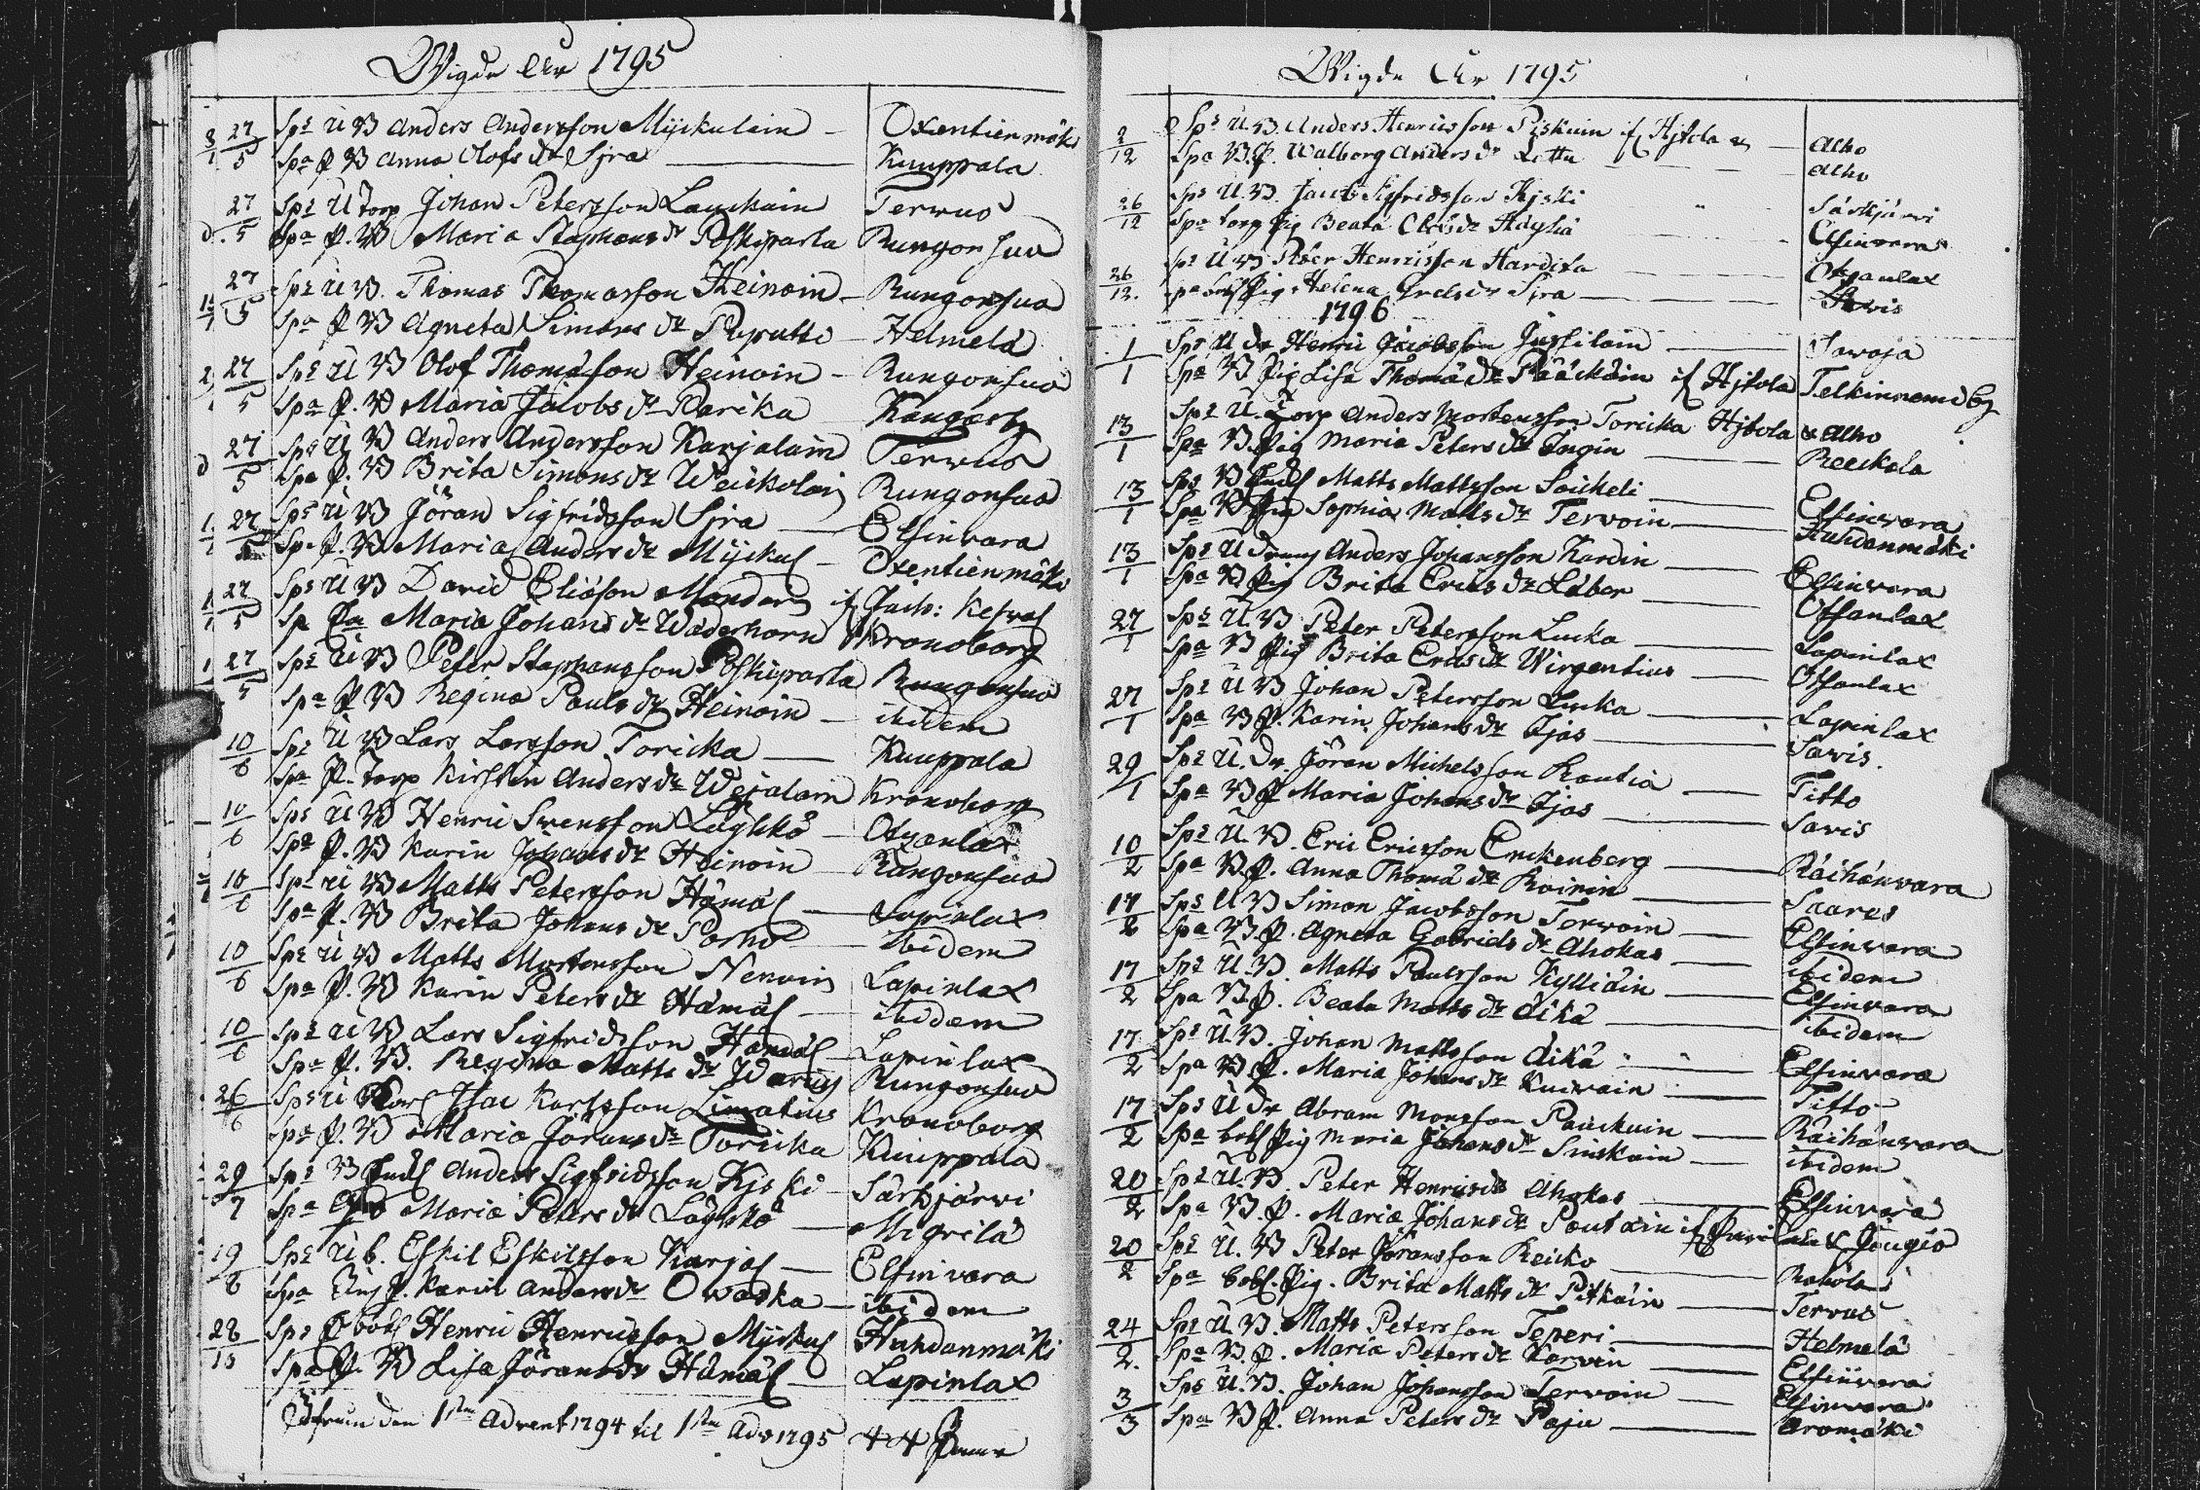 Wigde Åhr 1795
27/5 Spe U B Anders Andersson Myckulain – Oxentienmäki
Spa P B Anna Olofs dr Sjra – Kuuppala
27/5 Spe U Torp Johan Petersson Lauckain Terwus
Spa P. B Maria Staphans dr Poskiparta Rungonsuo
27/5 Spe U B. Thomas Thomasson Heinoin – Rungonsuo
Spa P B Agneta Simons dr Reputti – Helmelä
27/5 Spe U B Olof Thomasson Heinoin – Rungonsuo
Spa P. B Maria Jacobs dr Parika – Kangasby
27/5 Spe U B Anders Andersson Karjalain Terwus
Spa P. B Brita Simons dr Weickolain Rungonsuo
27/5 Spe U B Jöran Sigfridsson Sjra – Elsinvara
Spa P. B Maria Anders dr Myckul – Oxentienmäki
27/5 Spe U B David Eliasson Mander if Jack: Kesval
Sp Maria Johans dr Wäderhorn Kronoborg
27/5 Spe U B Peter Staphansson Poskiparta Rungonsuo
Spa P B Regina Pauls dr Heinoin – ibidem
10/6 Spe U B Lars Larsson Toricka – Kuuppala
Spa P. Torp Kirstin Anders dr Wejalain Kronoborg
10/6 Spe U B Henric Svensson Läghkö – Otsanlax
Spa P. B Karin Johans dr Heinoin – Rungonsuo
10/6 Spe U B Matts Petersson Hämäl – Lapinlax
Spa P. B Brita Johans dr Porho – ibidem
10/6 Spe U B Matts Mortensson Nenoin Lapinlax
Spa P. B Karin Peters dr Hämäl – ibidem
10/6 Spe U B Lars Sigfridsson Hämäl – Lapinlax
Spa P. B. Regina Matts dr Warius Rungonsuo
26/6 Spe U Isac Karlsson Limatius Kronoborg
Spa P. B Maria Jörans dr Toricka Kuuppala
29/7 Spe B Anders Sigfridsson Kjski – Särkjärvi
Spa Maria Peters dr Läghkö – Migrilä
19/8 Spe U b. Eskil Eskilsson Karjal – Elsinvara
Spa P. Karin Anders dr Owaska – ibidem
28/10 Spe Henric Henricsson Myckul Huhdanmäki
Spa P. B Lisa Jörans dr Hämäl – Lapinlax
ifrån den 1sta Advent 1794 til 1sta Adv 1795 44 Paar
Wigde Åhr 1795
2/12 Spe U. B. Anders Henricsson Piskuin if Hjtola – Alho
Spa B. P. Walborg Anders dr Lettu – Alho
26/12 Spe U. B. Jacob Sigfridsson Kjski Särkjärvi
Spa torp Pig Beata Olofs dr Häghä Elsinvara
26/12. Spe U B Peer Henricsson Hardika Otsanlax
Spa Pig Helena Nils dr Sjra – Savis
1796
1/1 Spe U Dr Henric Jacobsson Jussilain – Savoja
Spa B Pig Lisa Thomä dr Pääckäin if Hjtola Telkinnemi by
13/1 Spe U. Torp Anders Mortensson Toricka Hjtola & Alho
Spa B. Pig Maria Peters dr Ingin – Reeckola
13/1 Spe B Matts Mattsson Säickeli – Elsinvara
Spa B Pig Sophia Matts dr Tervoin – Huhdanmäki
13/1 Spe U Anders Johansson Kardin – Elsinvara
Spa B Pig Brita Erics dr Läber – Otsanlax
27/1 Spe U. B Peter Petersson Lucka – Lapinlax
Spa B Pig Brita Erics dr Wirgentius – Otsanlax
27/1 Spe U B Johan Petersson Lucka – Lapinlax
Spa B P. Karin Johans dr Ijas – Savis.
29/1 Spe U. Dr. Jöran Michelsson Rautia – Titto
Spa B P Maria Johans dr Ijas – Savis
10/2 Spe U. B. Eric Ericsson Enckenberg – Räihänvara
Spa B. P. Anna Thomä dr Roinin – Saares
17/2 Spe U B Simon Jacobsson Torvoin – Elsinvara
Spa B. P. Agneta Gabriels dr Ahokas – ibidem
17/2 Spe U. B. Matts Paulsson Kylliäin – Elsinvara
Spa B. P. Beata Matts dr Äikä – ibidem
17/2 Spe U. B. Johan Mattsson Äikä Elsinvara
Spa B P. Maria Johans dr Kuivain – Titto
17/2 Spe U Dr Abram Monsson Pauckuin – Räihänvara
Spa Pig Maria Johans dr Sinskain – ibidem
20/2 Spe U. B. Peter Henrics Ahokas – Elsinvara
Spa B. P. Maria Johans dr Pautiain Jougio
20/2 Spe U. B Peter Jöransson Reuko – Rahola
Spa Pig. Brita Matts dr Pitkäin – Tervus
24/2. Spe U. B. Matts Petersson Teperi – Helmelä
Spa B. P. Maria Peters dr Korvin – Elsinvara
3/3 Spe U. B. Johan Johansson Tervoin – Elsinvara
Spa B P. Anna Peters dr Paju – Aromäki